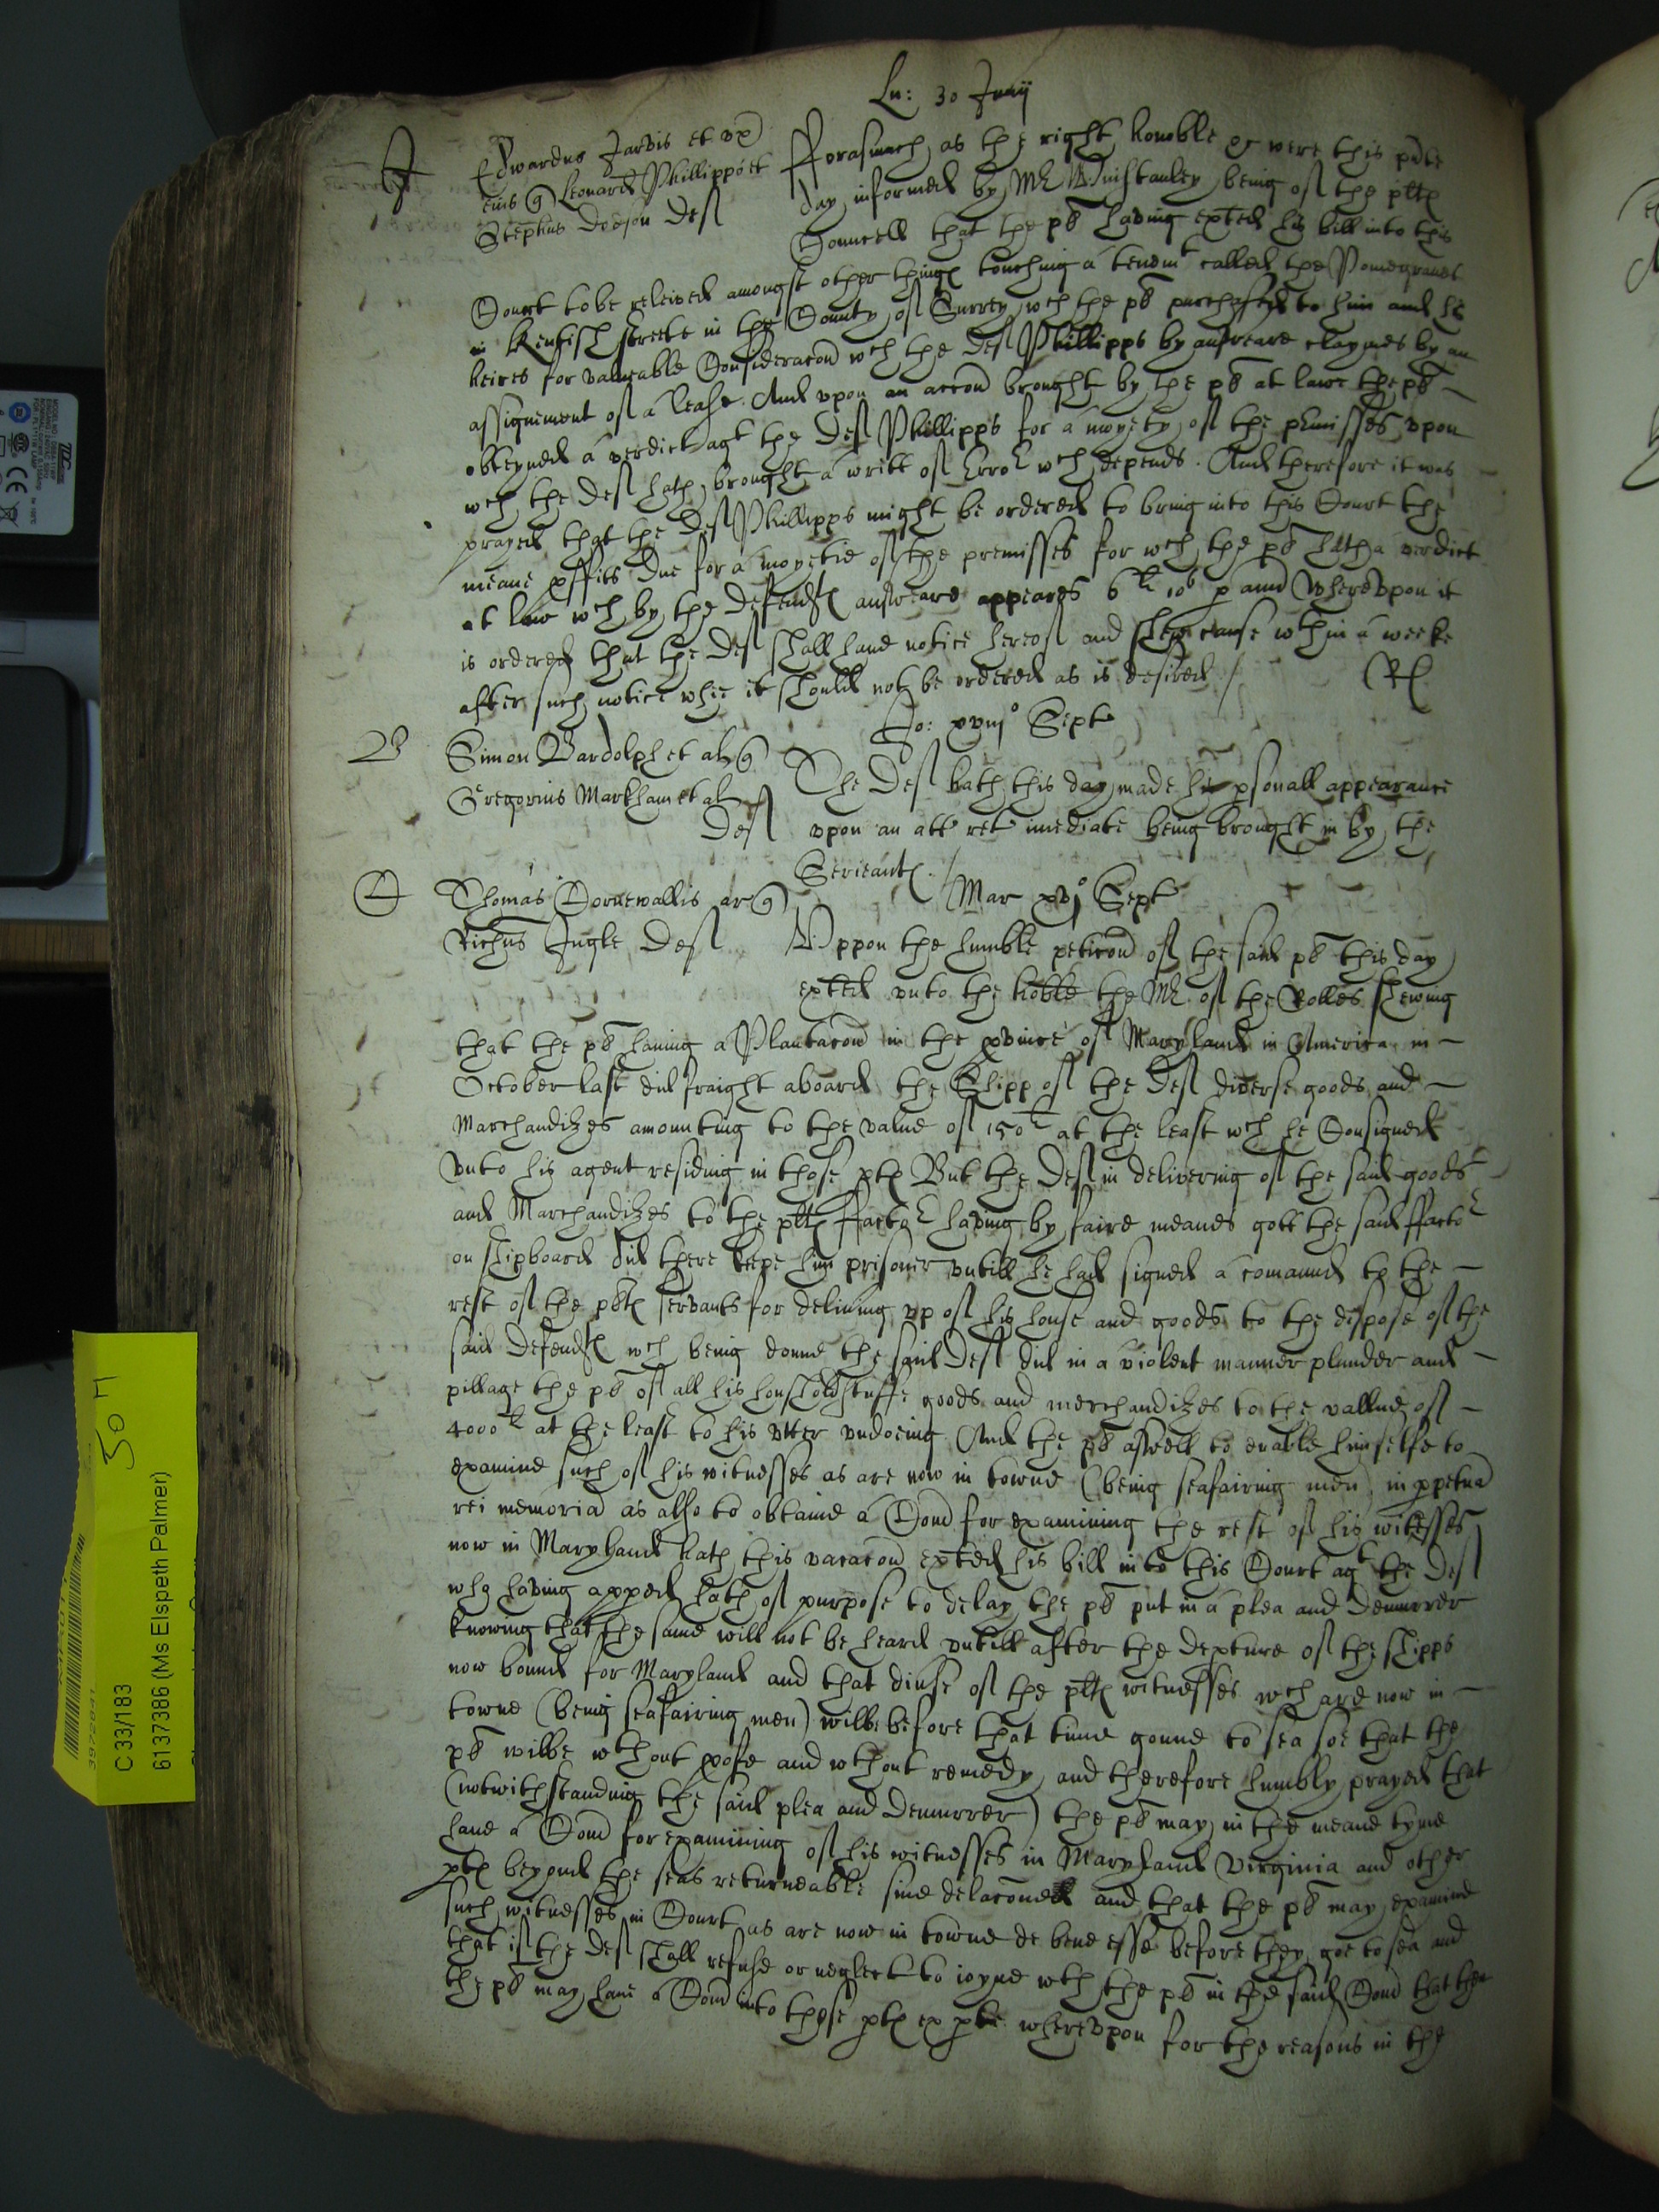 Lu: 30 Junij
J
Edwardus Jarvis et ux
eius q Leonard Phillipps et
Stephus Dodson Def
Forasmuch as the right honoble &c were this pnte
day informed by Mr Winstanley being of the plts
Councell that the plt having exted his bill into this
Court to be releived amongst other things touching a tenemt called the Pomegranet
in Kentish streete in the County of Surrey wch the plt purchased to him and his
heires for valueable Consideracon wch the Def Phillipps by answeare claymes by an
assignement of a lease. And upon an accon brought by the plt at lawe the plt
obteyned a verdict agt the Def Phillipps for a moyety of the pmisses upon
wch the Def hath brought a writt of Error wch depends. And therefore it was
prayed that the Def Phillipps might be ordered to bring into this Court the
meane pffits due for a moyetie of the premisses for wch the plt hath a verdict
at law wch by the Defendts answeare appeares 6li 10s p ann Whereupon it
is ordered that the Def shall have notice hereof and shew cause wthin a weeke
after such notice whie it should not be ordered as is desired /
Jo: xviijo Sept
B
Simon Bardolph et al q
Gregorius Markham et al
Def
The Def hath this day made his psonall appearance
upon an att ret imediate being brought in by the
Serieants /
Mar xvjo Sept
C
Thomas Cornewallis ar q
Richus Ingle Def
Uppon the humble peticon of the said plt this day
exted unto the hoble the Mr of the Rolles shewing
that the plt having a Plantacon in the pvince of Maryland in America in
October last did fraight aboard the Shipp of the Def diverse goods and
Marchandizes amounting to the value of 150li at the least wch he Consigned
unto his agent residing in those pts But the Def in delivering of the said goods
and Marchandizes to the plts ffactor having by faire meanes gott the said ffactor
on shipboard did there keepe him prisoner untill he had signed a comaund to the
rest of the plts servants for deliving up of his house and goods to the dispose of the
said Defendts wch being donne the said Def did in a violent manner plunder and
pillage the plt of all his housholdstuffe goods and merchandizes to the vallue of
4000li at the least to his utter undoeing And the plt aswell to enable himselfe to
examine such of his witnesses as are now in towne (being seafairing men) in ppetua
rei memoria as also to obtaine a Comd for examining the rest of his wittesses
now in Maryland hath this vacacon exted his bill into this Court agt the Def
who having apped hath of purpose to delay the plt put in a plea and Demurrer
knowing that the same will not be heard untill after the depture of the shipps
now bound for Maryland and that divse of the plts witnesses wch are now in
towne (being seafairing men) wilbe before that time gonne to sea soe that the
plt wilbe wthout profe and wthout remedy and therefore humbly prayed that
(notwithstanding the said plea and Demurrer) the plt may in the meane tyme
have a Comd for examining of his witnesses in Maryland Virginia and other
pts beyond the seas returneable sine delacone and that the plt may examine
such witnesses in Court as are now in towne de bene esse before they goe to sea and
that if the Def shall refuse or neglect to ioyne wth the plt in the said Comd that then
the plt may have a Comd into those pts ex pte whereupon for the reasons in the
C 33/183
6137386 (Ms Elspeth Palmer)